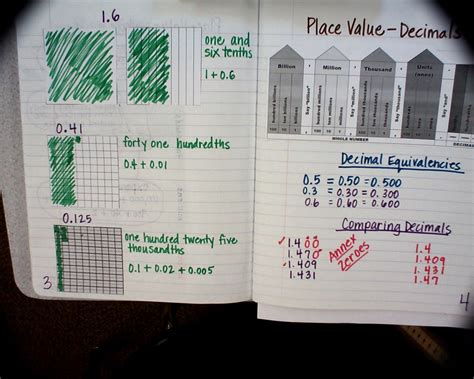 1.6
one and
six tenths
1 + 0.6
0.41
forty one hundredths
0.4 + 0.01
0.125
one hundred twenty five
thousandths
0.1 + 0.02 + 0.005
3
Place Value - Decimals
Billion
Million
Thousand
Units
(ones)
WHOLE NUMBER
Decimal Equivalencies
0.5 = 0.50 = 0.500
0.3 = 0.30 = 0.300
0.6 = 0.60 = 0.600
Comparing Decimals
1.400
1.470
1.409
1.431
Annex
Zeroes
1.4
1.409
1.431
1.47
4